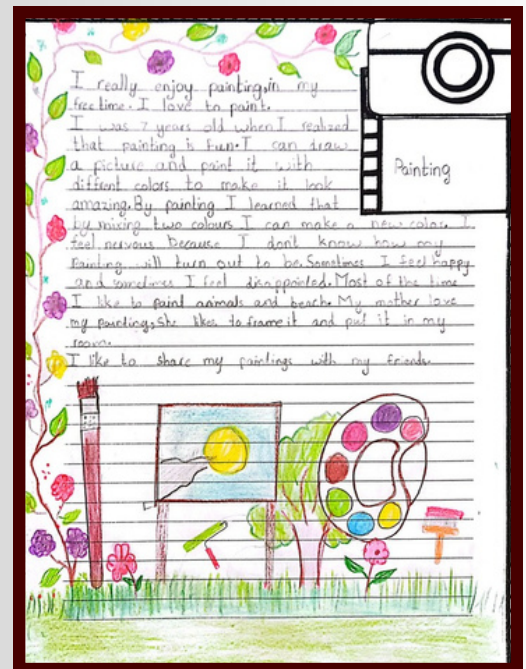 I really enjoy painting, in my
free time. I love to paint.
I was 7 years old when I realized
that painting is fun. I can draw
a picture and paint it with
diffrent colors to make it look
amazing. By painting I learned that
by mixing two colours I can make a new color. I
feel nervous because I don't know how my
Painting will turn out to be. Sometimes I feel happy
and sometimes I feel disappointed. Most of the time
I like to paint animals and beach. My mother love
my painting, She likes to frame it and put it in my
room.
I like to share my paintings with my friends.
Painting